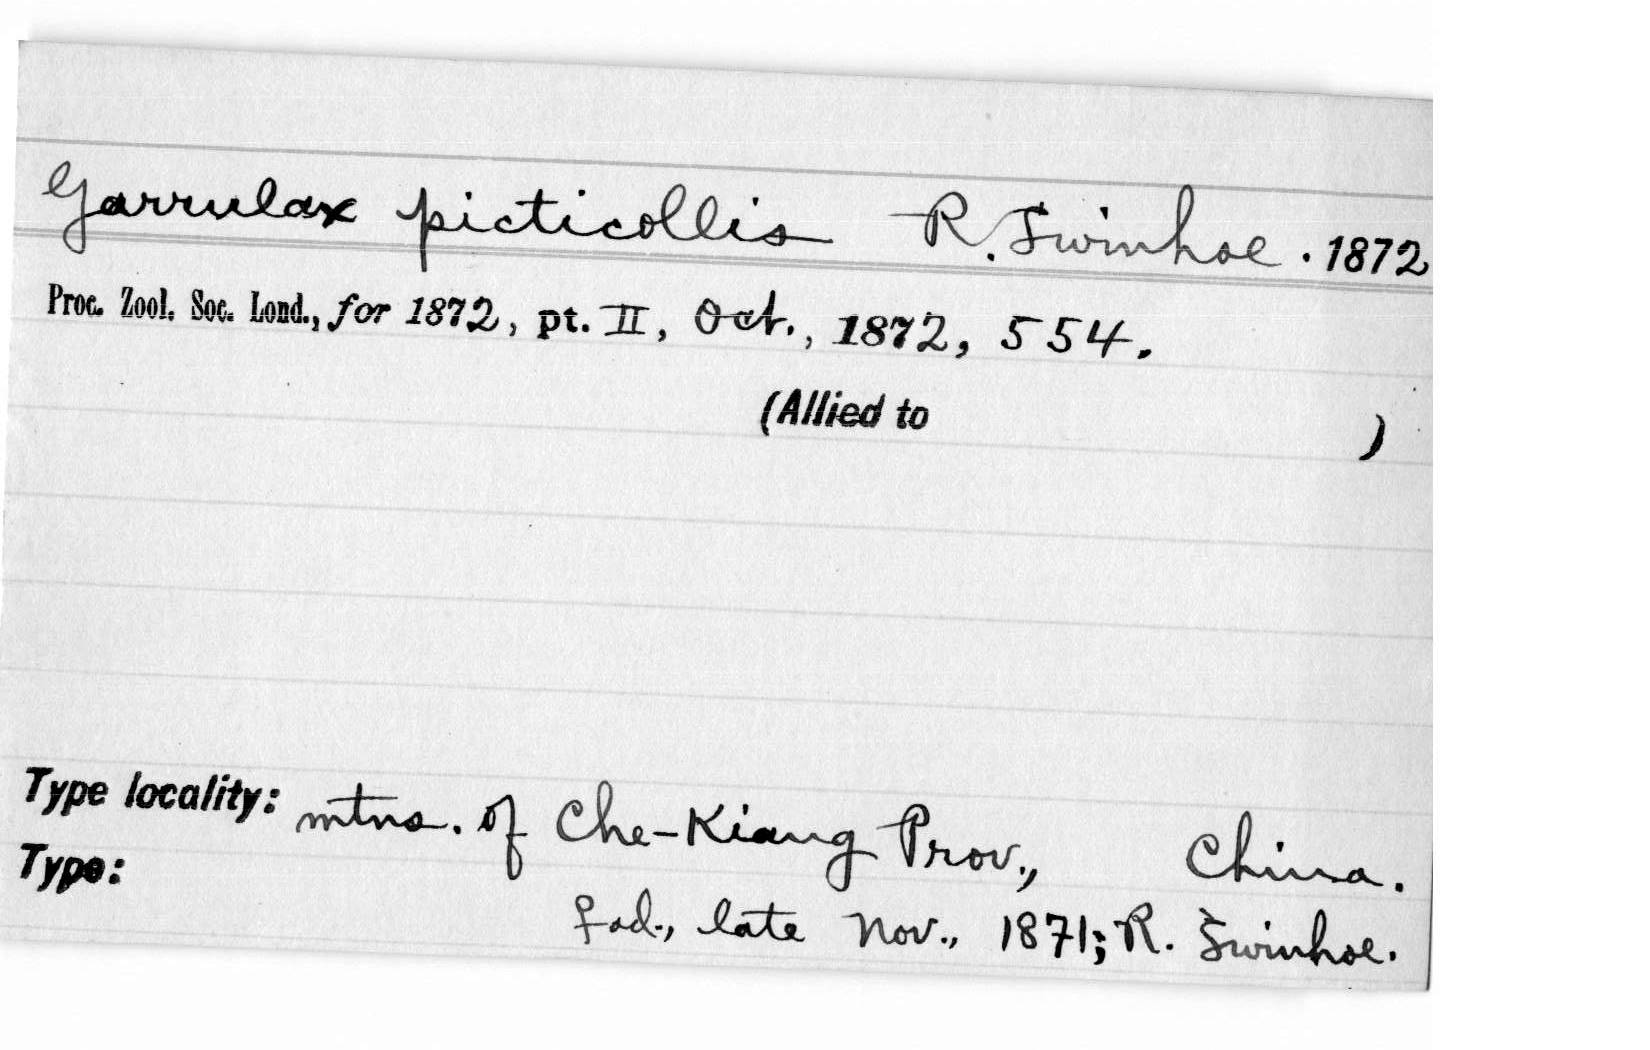 Garrulax picticollis R. Swinhoe. 1872
Proc. Zool. Soc. Lond., for 1872, pt. II, Oct., 1872, 554.
(Allied to )
Type locality: mtns. of Che-Kiang Prov., China.
Type:
ad., late Nov., 1871; R. Swinhoe.